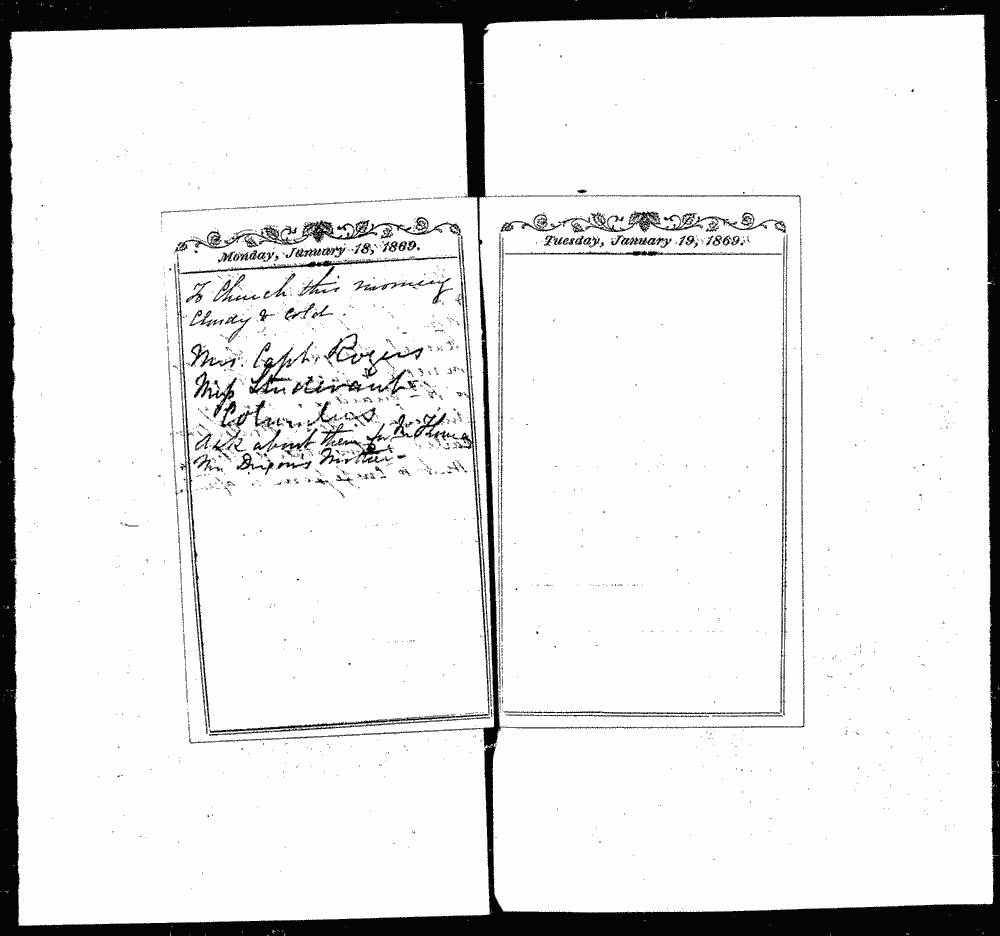 Monday, January 18, 1869.
To Church this morning
Cloudy & cold.
Mrs. Capt. Rogers
Miss Studivant
Columbus
Ask about them for Mr Thomas
Mother
Tuesday, January 19, 1869.